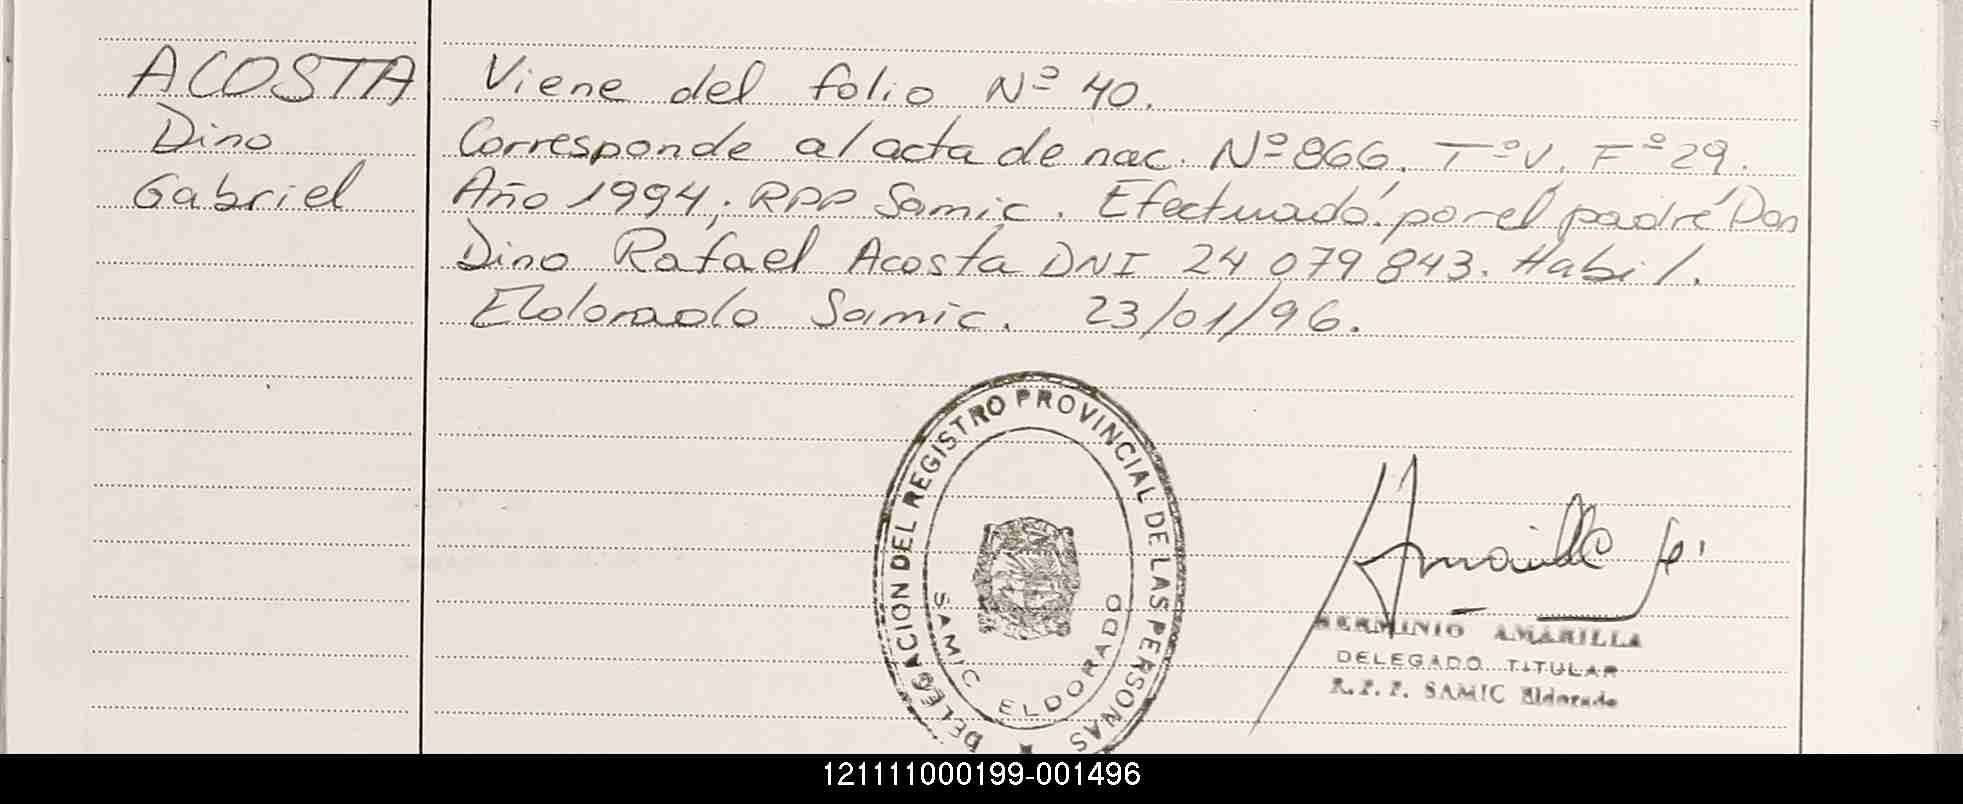 ACOSTA
Dino
Gabriel
Viene del folio Nº 40.
Corresponde al acta de nac. Nº 866. Tº V. Fº 29.
Año 1994; RPP Samic. Efectuado por el padre Don
Dino Rafael Acosta DNI 24 079 843. Habil.
Eldorado Samic. 23/01/96.
DELEGACION DEL REGISTRO PROVINCIAL DE LAS PERSONAS
SAMIC ELDORADO
HERMINIO AMARILLA
DELEGADO TITULAR
R.P.P. SAMIC Eldorado
121111000199-001496